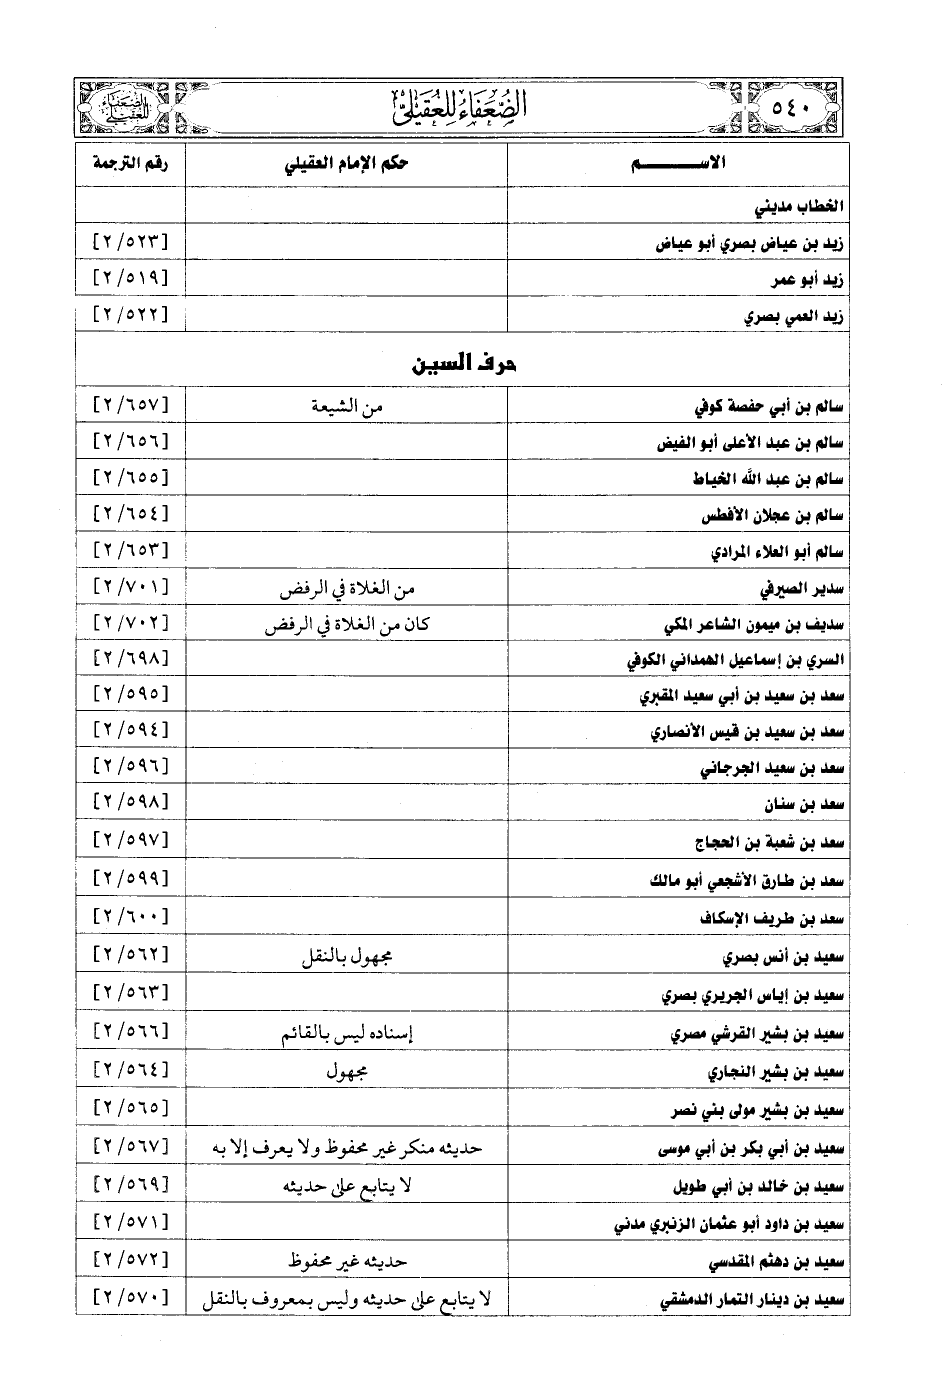 ٥٤٠
الضعفاء للعقيلي
الضعفاء للعقيلي
الاســــــم حكم الإمام العقيلي رقم الترجمة
الخطاب مديني
زيد بن عياض بصري أبو عياض [٢/٥٢٣]
زيد أبو عمر [٢/٥١٩]
زيد العمي بصري [٢/٥٢٢]
حرف السين
سالم بن أبي حفصة كوفي من الشيعة [٢/٦٥٧]
سالم بن عبد الأعلى أبو الفيض [٢/٦٥٦]
سالم بن عبد الله الخياط [٢/٦٥٥]
سالم بن عجلان الأفطس [٢/٦٥٤]
سالم أبو العلاء المرادي [٢/٦٥٣]
سدير الصيرفي من الغلاة في الرفض [٢/٧٠١]
سديف بن ميمون الشاعر المكي كان من الغلاة في الرفض [٢/٧٠٢]
السري بن إسماعيل الهمداني الكوفي [٢/٦٩٨]
سعد بن سعيد بن أبي سعيد المقبري [٢/٥٩٥]
سعد بن سعيد بن قيس الأنصاري [٢/٥٩٤]
سعد بن سعيد الجرجاني [٢/٥٩٦]
سعد بن سنان [٢/٥٩٨]
سعد بن شعبة بن الحجاج [٢/٥٩٧]
سعد بن طارق الأشجعي أبو مالك [٢/٥٩٩]
سعد بن طريف الإسكاف [٢/٦٠٠]
سعيد بن أنس بصري مجهول بالنقل [٢/٥٦٢]
سعيد بن إياس الجريري بصري [٢/٥٦٣]
سعيد بن بشير القرشي مصري إسناده ليس بالقائم [٢/٥٦٦]
سعيد بن بشير النجاري مجهول [٢/٥٦٤]
سعيد بن بشير مولى بني نصر [٢/٥٦٥]
سعيد بن أبي بكر بن أبي موسى حديثه منكر غير محفوظ ولا يعرف إلا به [٢/٥٦٧]
سعيد بن خالد بن أبي طويل لا يتابع على حديثه [٢/٥٦٩]
سعيد بن داود أبو عثمان الزنبري مدني [٢/٥٧١]
سعيد بن دهثم المقدسي حديثه غير محفوظ [٢/٥٧٢]
سعيد بن دينار التمار الدمشقي لا يتابع على حديثه وليس بمعروف بالنقل [٢/٥٧٠]